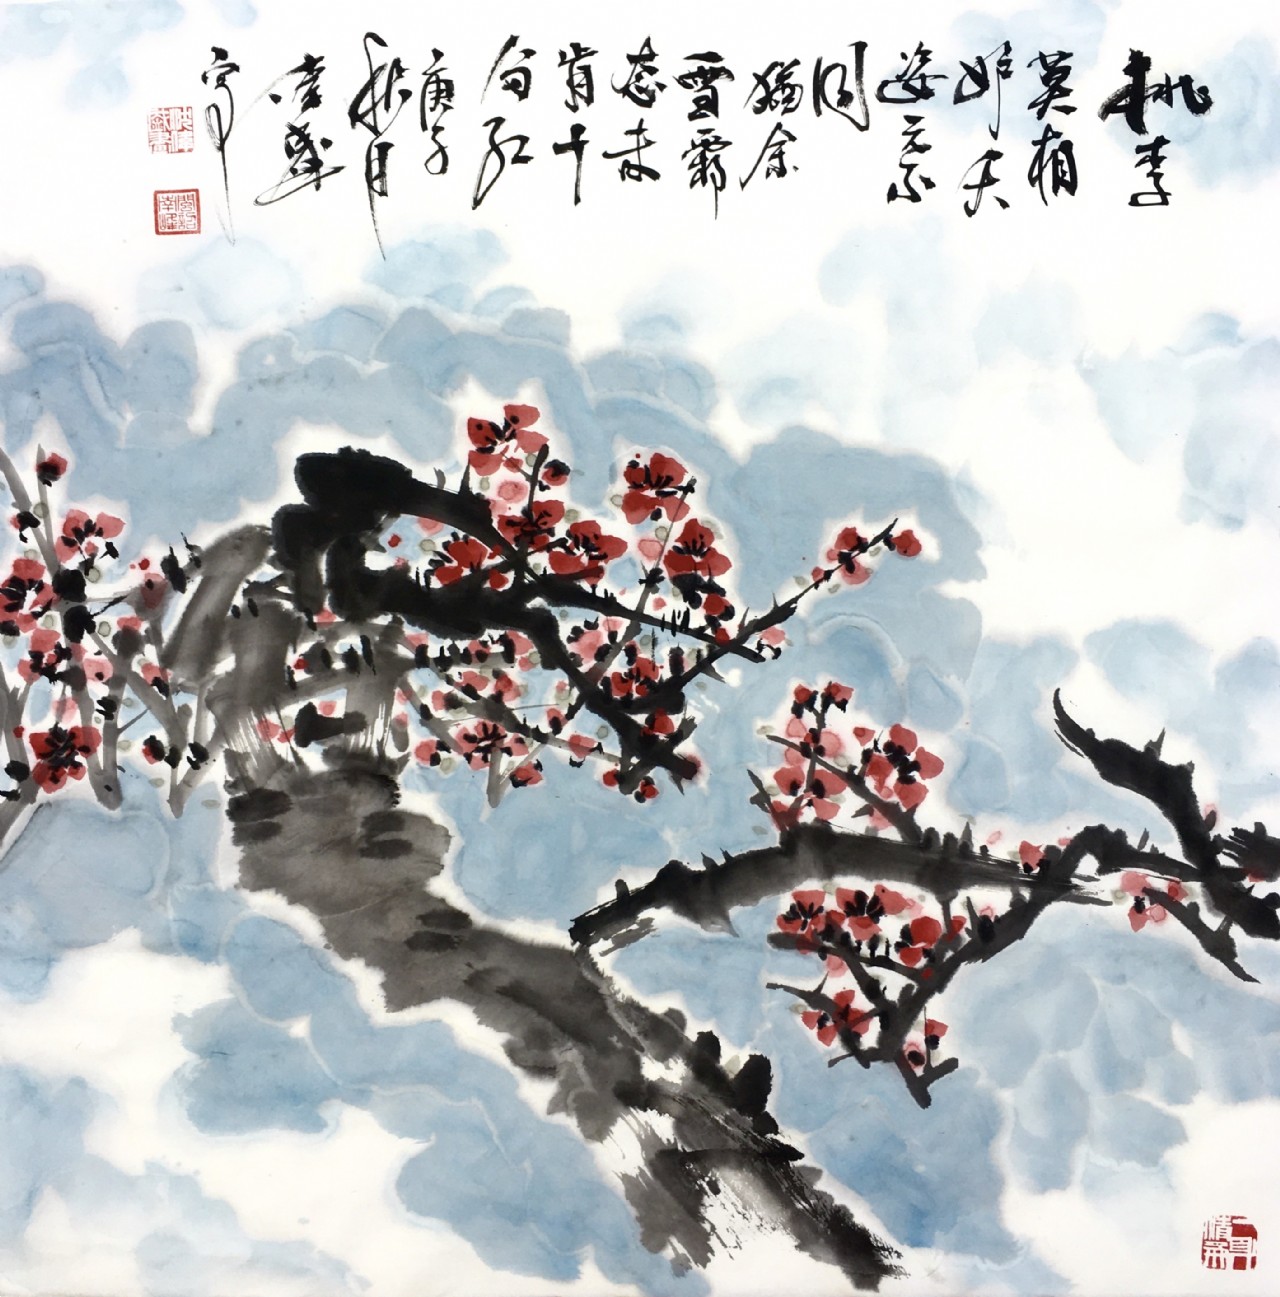 桃李
莫相
妒夭
姿元不
同
猶余
雪霜
态未
肯十
分红
庚子
秋月
盛
写